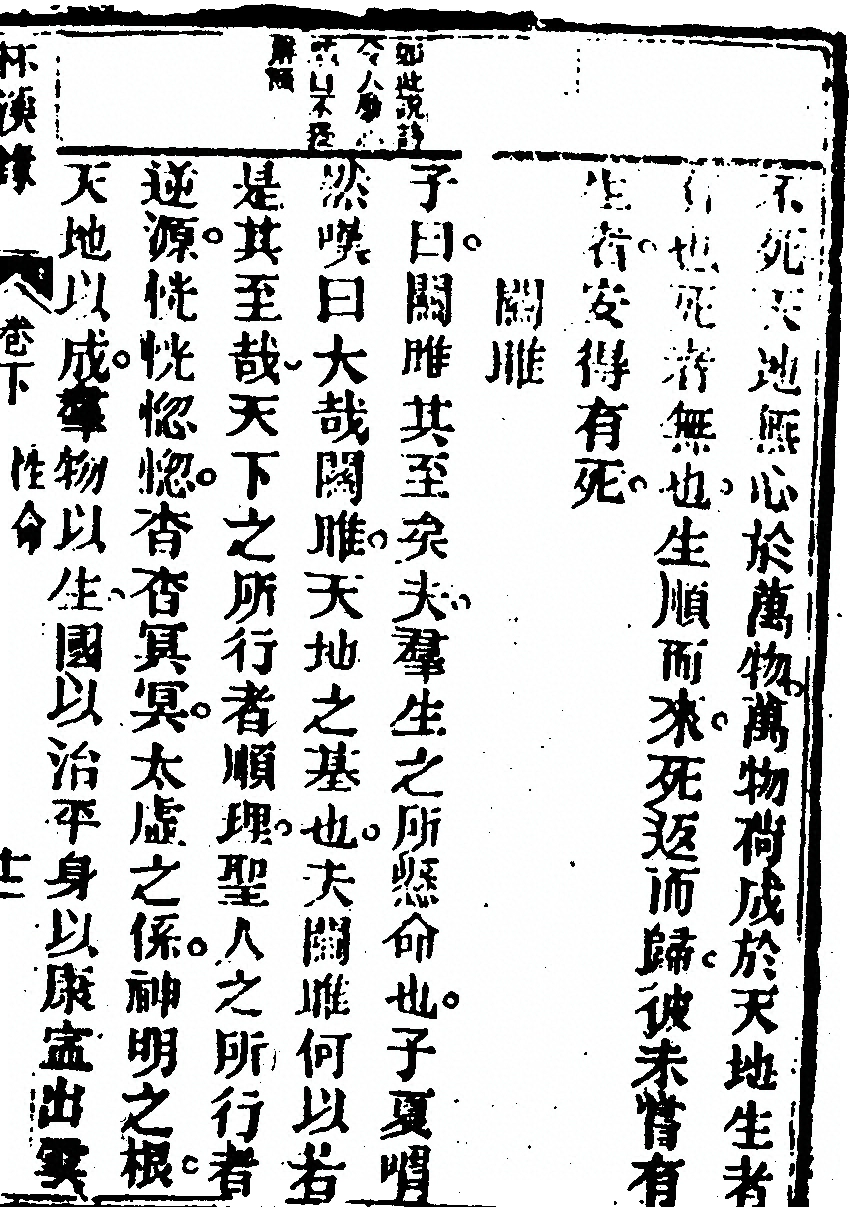 如此說詩
令人
口不
解頤
不死天地無心於萬物萬物苟成於天地生者
有也死者無也生順而來死返而歸彼未嘗有
生者安得有死
關雎
子曰關雎其至矣夫羣生之所懸命也子夏喟
然嘆曰大哉關雎天地之基也夫關雎何以若
是其至哉天下之所行者順理聖人之所行者
逆源恍恍惚惚杳杳冥冥太虛之係神明之根
天地以成羣物以生國以治平身以康寍出雲
卷下
性命
十二